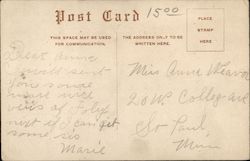 Post Card
1500
PLACE
STAMP
HERE
THIS SPACE MAY BE USED
FOR COMMUNICATION.
THE ADDRESS ONLY TO BE
WRITTEN HERE.
Dear Anne
I will send
you some
more
views of
next if I can get
some sis
Marie
Miss Anne
20 W. College ave
So Paul,
Minn